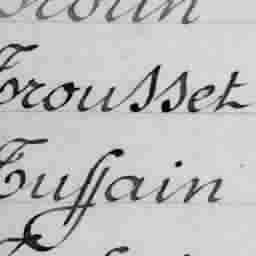 Trousset
Tuſſain